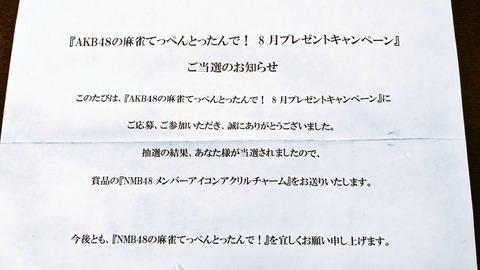 『AKB48の麻雀てっぺんとったんで！ 8月プレゼントキャンペーン』
ご当選のお知らせ
このたびは、『AKB48の麻雀てっぺんとったんで！ 8月プレゼントキャンペーン』に
ご応募、ご参加いただき、誠にありがとうございました。
抽選の結果、あなた様が当選されましたので、
賞品の『NMB48 メンバーアイコンアクリルチャーム』をお送りいたします。
今後とも、『NMB48の麻雀てっぺんとったんで！』を宜しくお願い申し上げます。